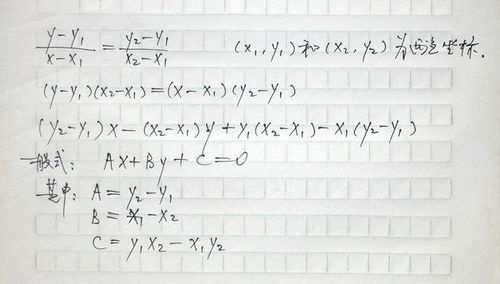 (y-y₁)/(x-x₁) = (y₂-y₁)/(x₂-x₁) (x₁, y₁) 和 (x₂, y₂) 为两点坐标.
(y-y₁)(x₂-x₁)=(x-x₁)(y₂-y₁)
(y₂-y₁)x-(x₂-x₁)y+y₁(x₂-x₁)-x₁(y₂-y₁)
一般式: Ax+By+C=0
其中: A=y₂-y₁
B=x₁-x₂
C=y₁x₂-x₁y₂